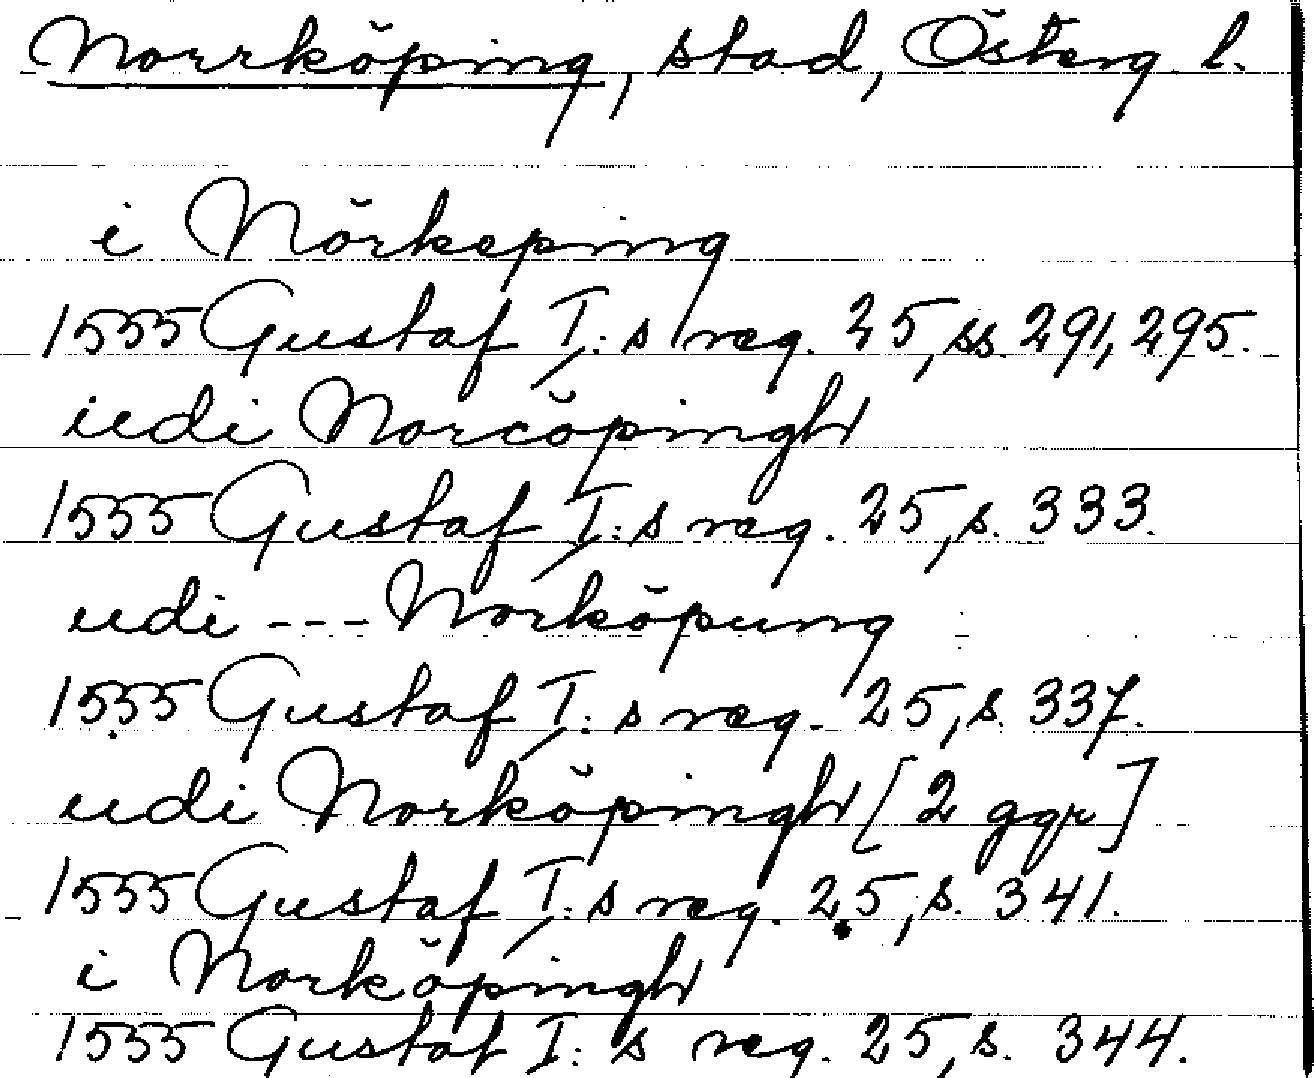 Norrköping, stad, Österg l.
i Nörkeping
1555 Gustaf I:s reg. 25, ss. 291, 295.
udi Norcöpingh
1555 Gustaf I:s reg. 25, s. 333.
udi --- Norköpung
1555 Gustaf I:s reg. 25, s. 337.
udi Norköpingh [2 ggr]
1555 Gustaf I:s reg. 25, s. 341.
i Norköpingh
1555 Gustaf I:s reg. 25, s. 344.